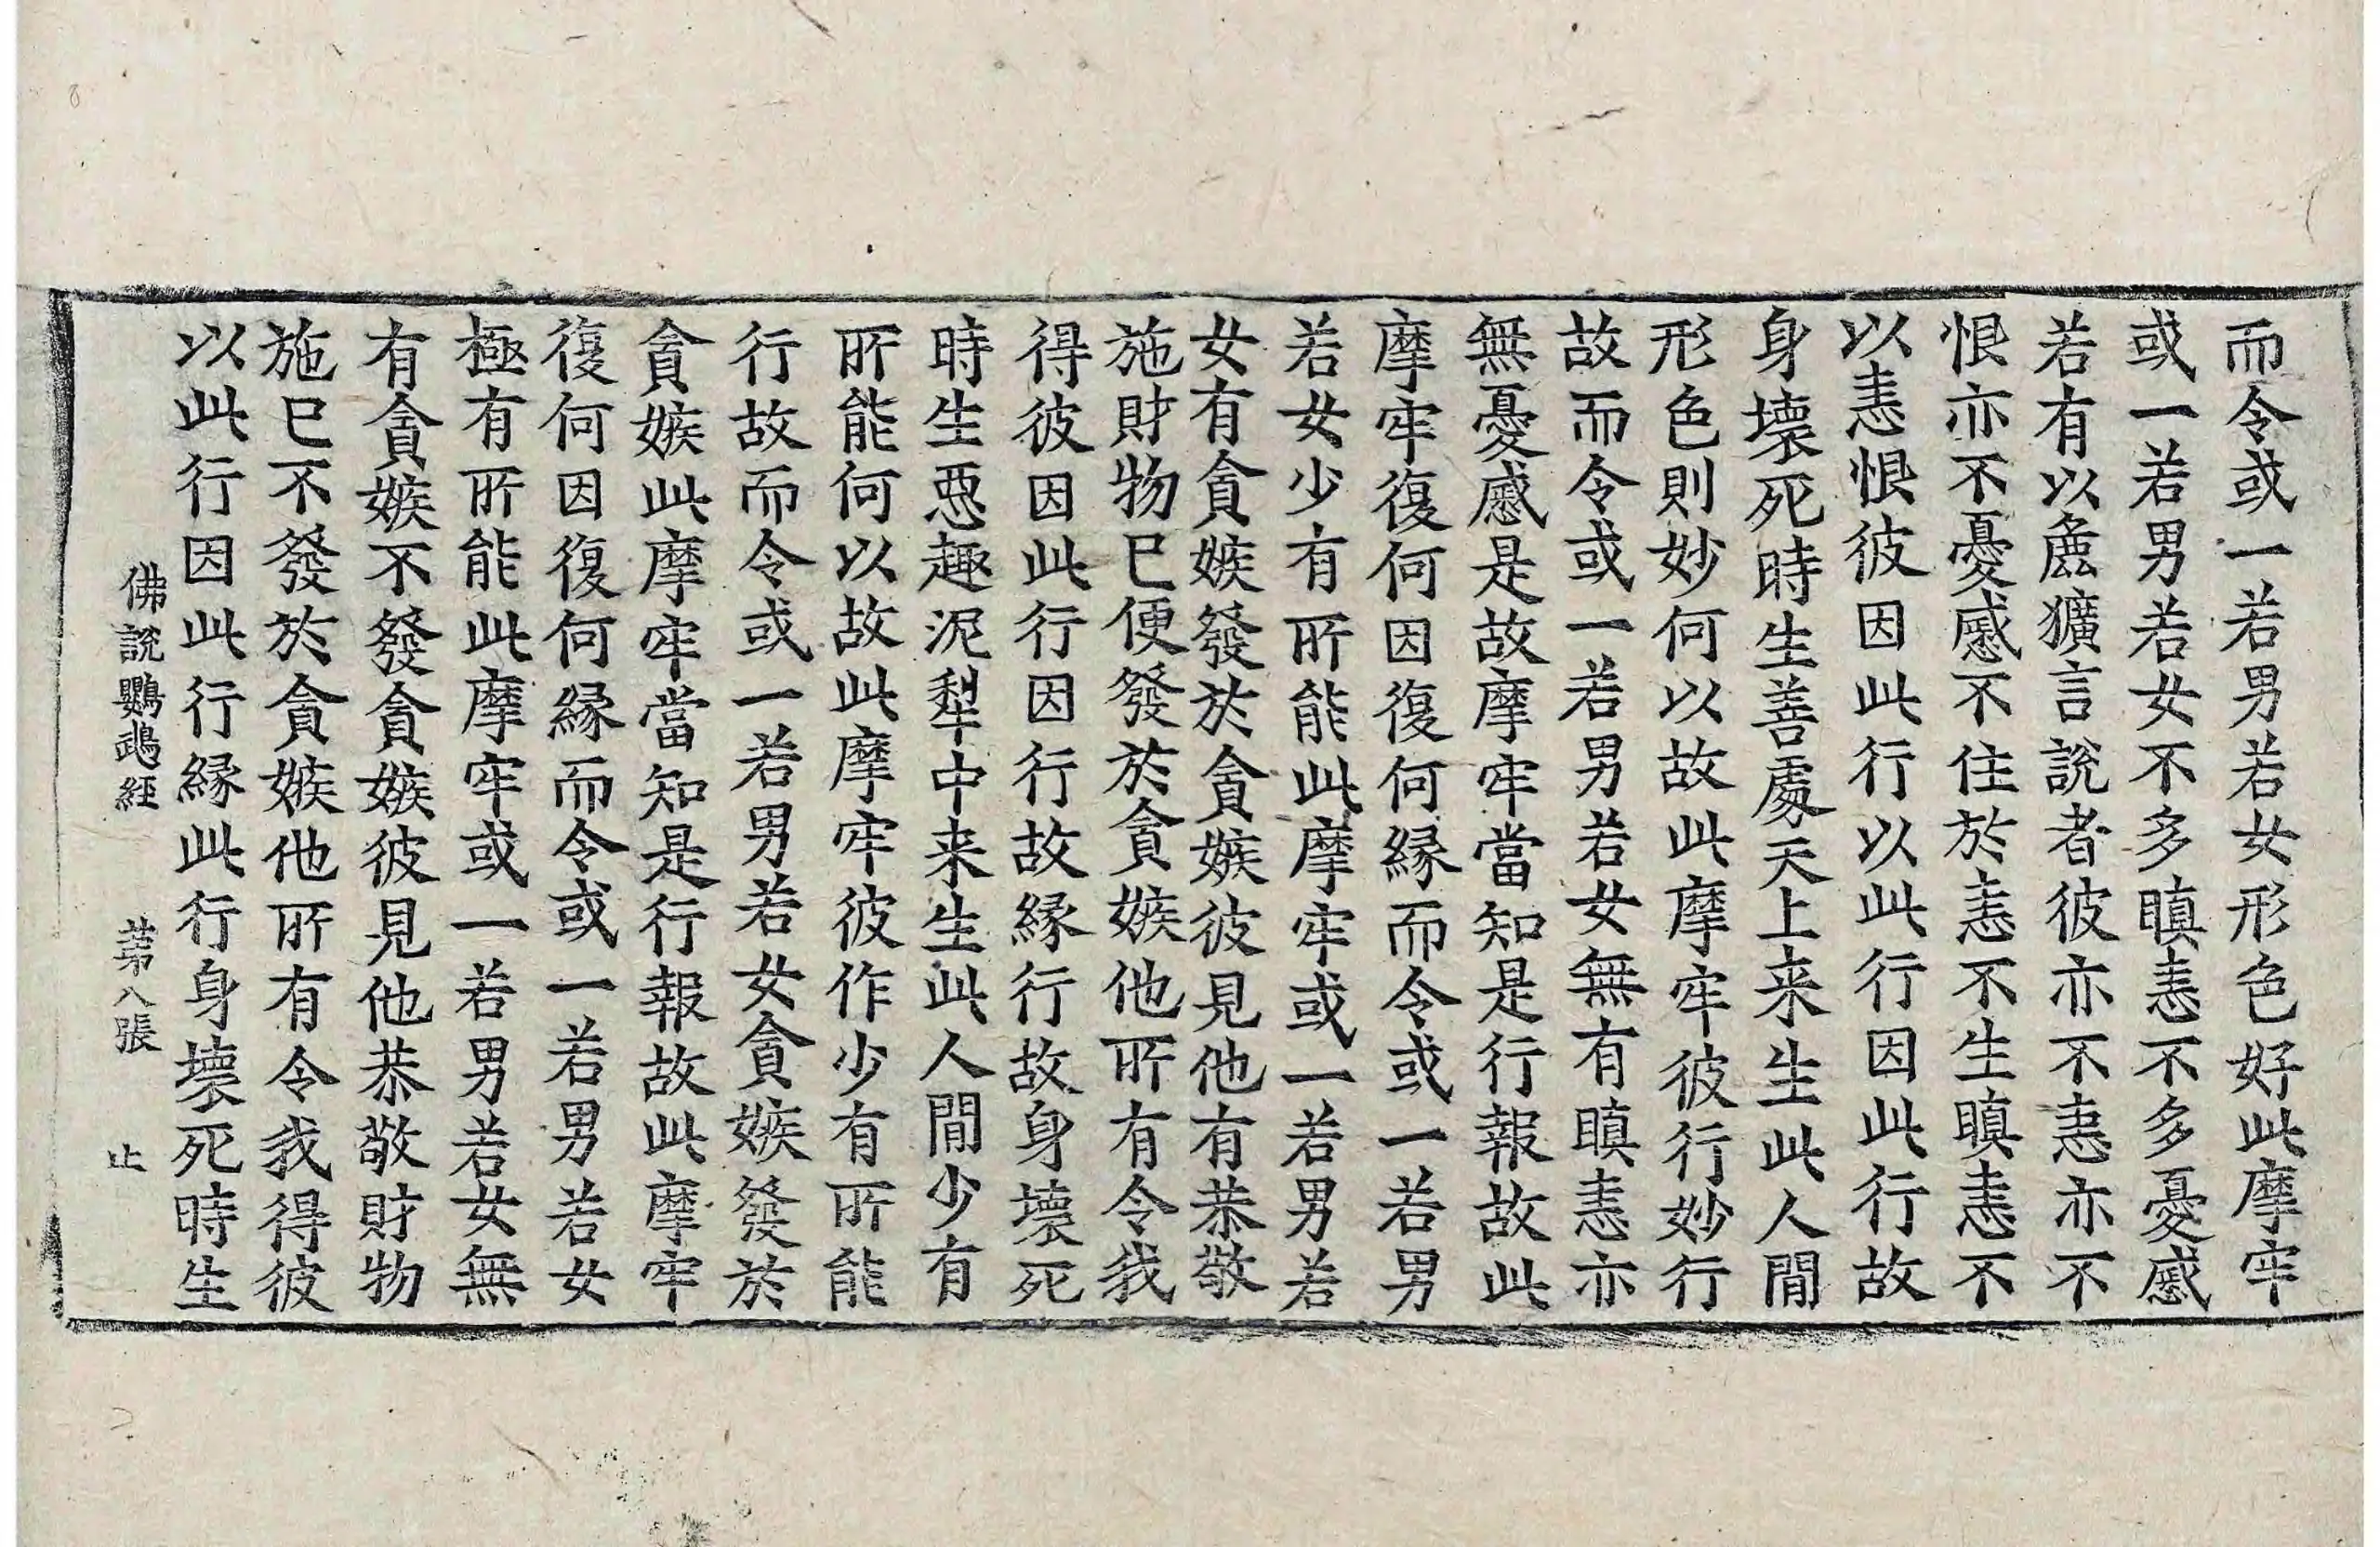 而令或一若男若女形色好此摩牢
或一若男若女不多瞋恚不多憂慼
若有以麁獷言說者彼亦不恚亦不
恨亦不憂慼不住於恚不生瞋恚不
以恚恨彼因此行以此行因此行故
身壞死時生善處天上来生此人間
形色則妙何以故此摩牢彼行妙行
故而令或一若男若女無有瞋恚亦
無憂慼是故摩牢當知是行報故此
摩牢復何因復何縁而令或一若男
若女少有所能此摩牢或一若男若
女有貪嫉發於貪嫉彼見他有恭敬
施財物已便發於貪嫉他所有令我
得彼因此行因行故縁行故身壞死
時生惡趣泥犁中来生此人間少有
所能何以故此摩牢彼作少有所能
行故而令或一若男若女貪嫉發於
貪嫉此摩牢當知是行報故此摩牢
復何因復何縁而令或一若男若女
極有所能此摩牢或一若男若女無
有貪嫉不發貪嫉彼見他恭敬財物
施已不發於貪嫉他所有令我得彼
以此行因此行縁此行身壞死時生
佛說鸚鵡經 苐八張 止